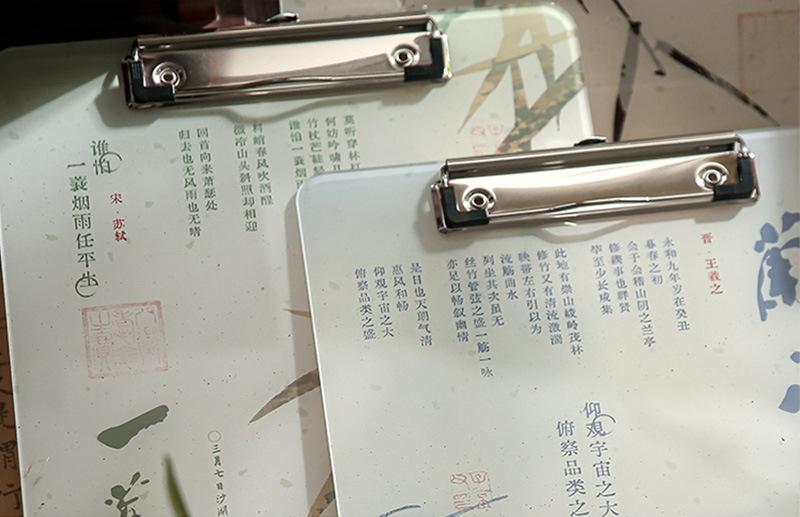 莫听穿林
何妨吟啸
竹杖芒鞋轻
谁怕一蓑烟
料峭春风吹酒醒
微冷山头斜照却相迎
回首向来萧瑟处
归去也无风雨也无晴
宋·苏轼
谁怕
一蓑烟雨任平生
一蓑
〇三月七日沙湖
晋·王羲之
永和九年岁在癸丑
暮春之初
会于会稽山阴之兰亭
修禊事也群贤
毕至少长咸集
此地有崇山峻岭茂林
修竹又有清流激湍
映带左右引以为
流觞曲水
列坐其次虽无
丝竹管弦之盛一觞一咏
亦足以畅叙幽情
是日也天朗气清
惠风和畅
仰观宇宙之大
俯察品类之盛
仰观宇宙之大
俯察品类之